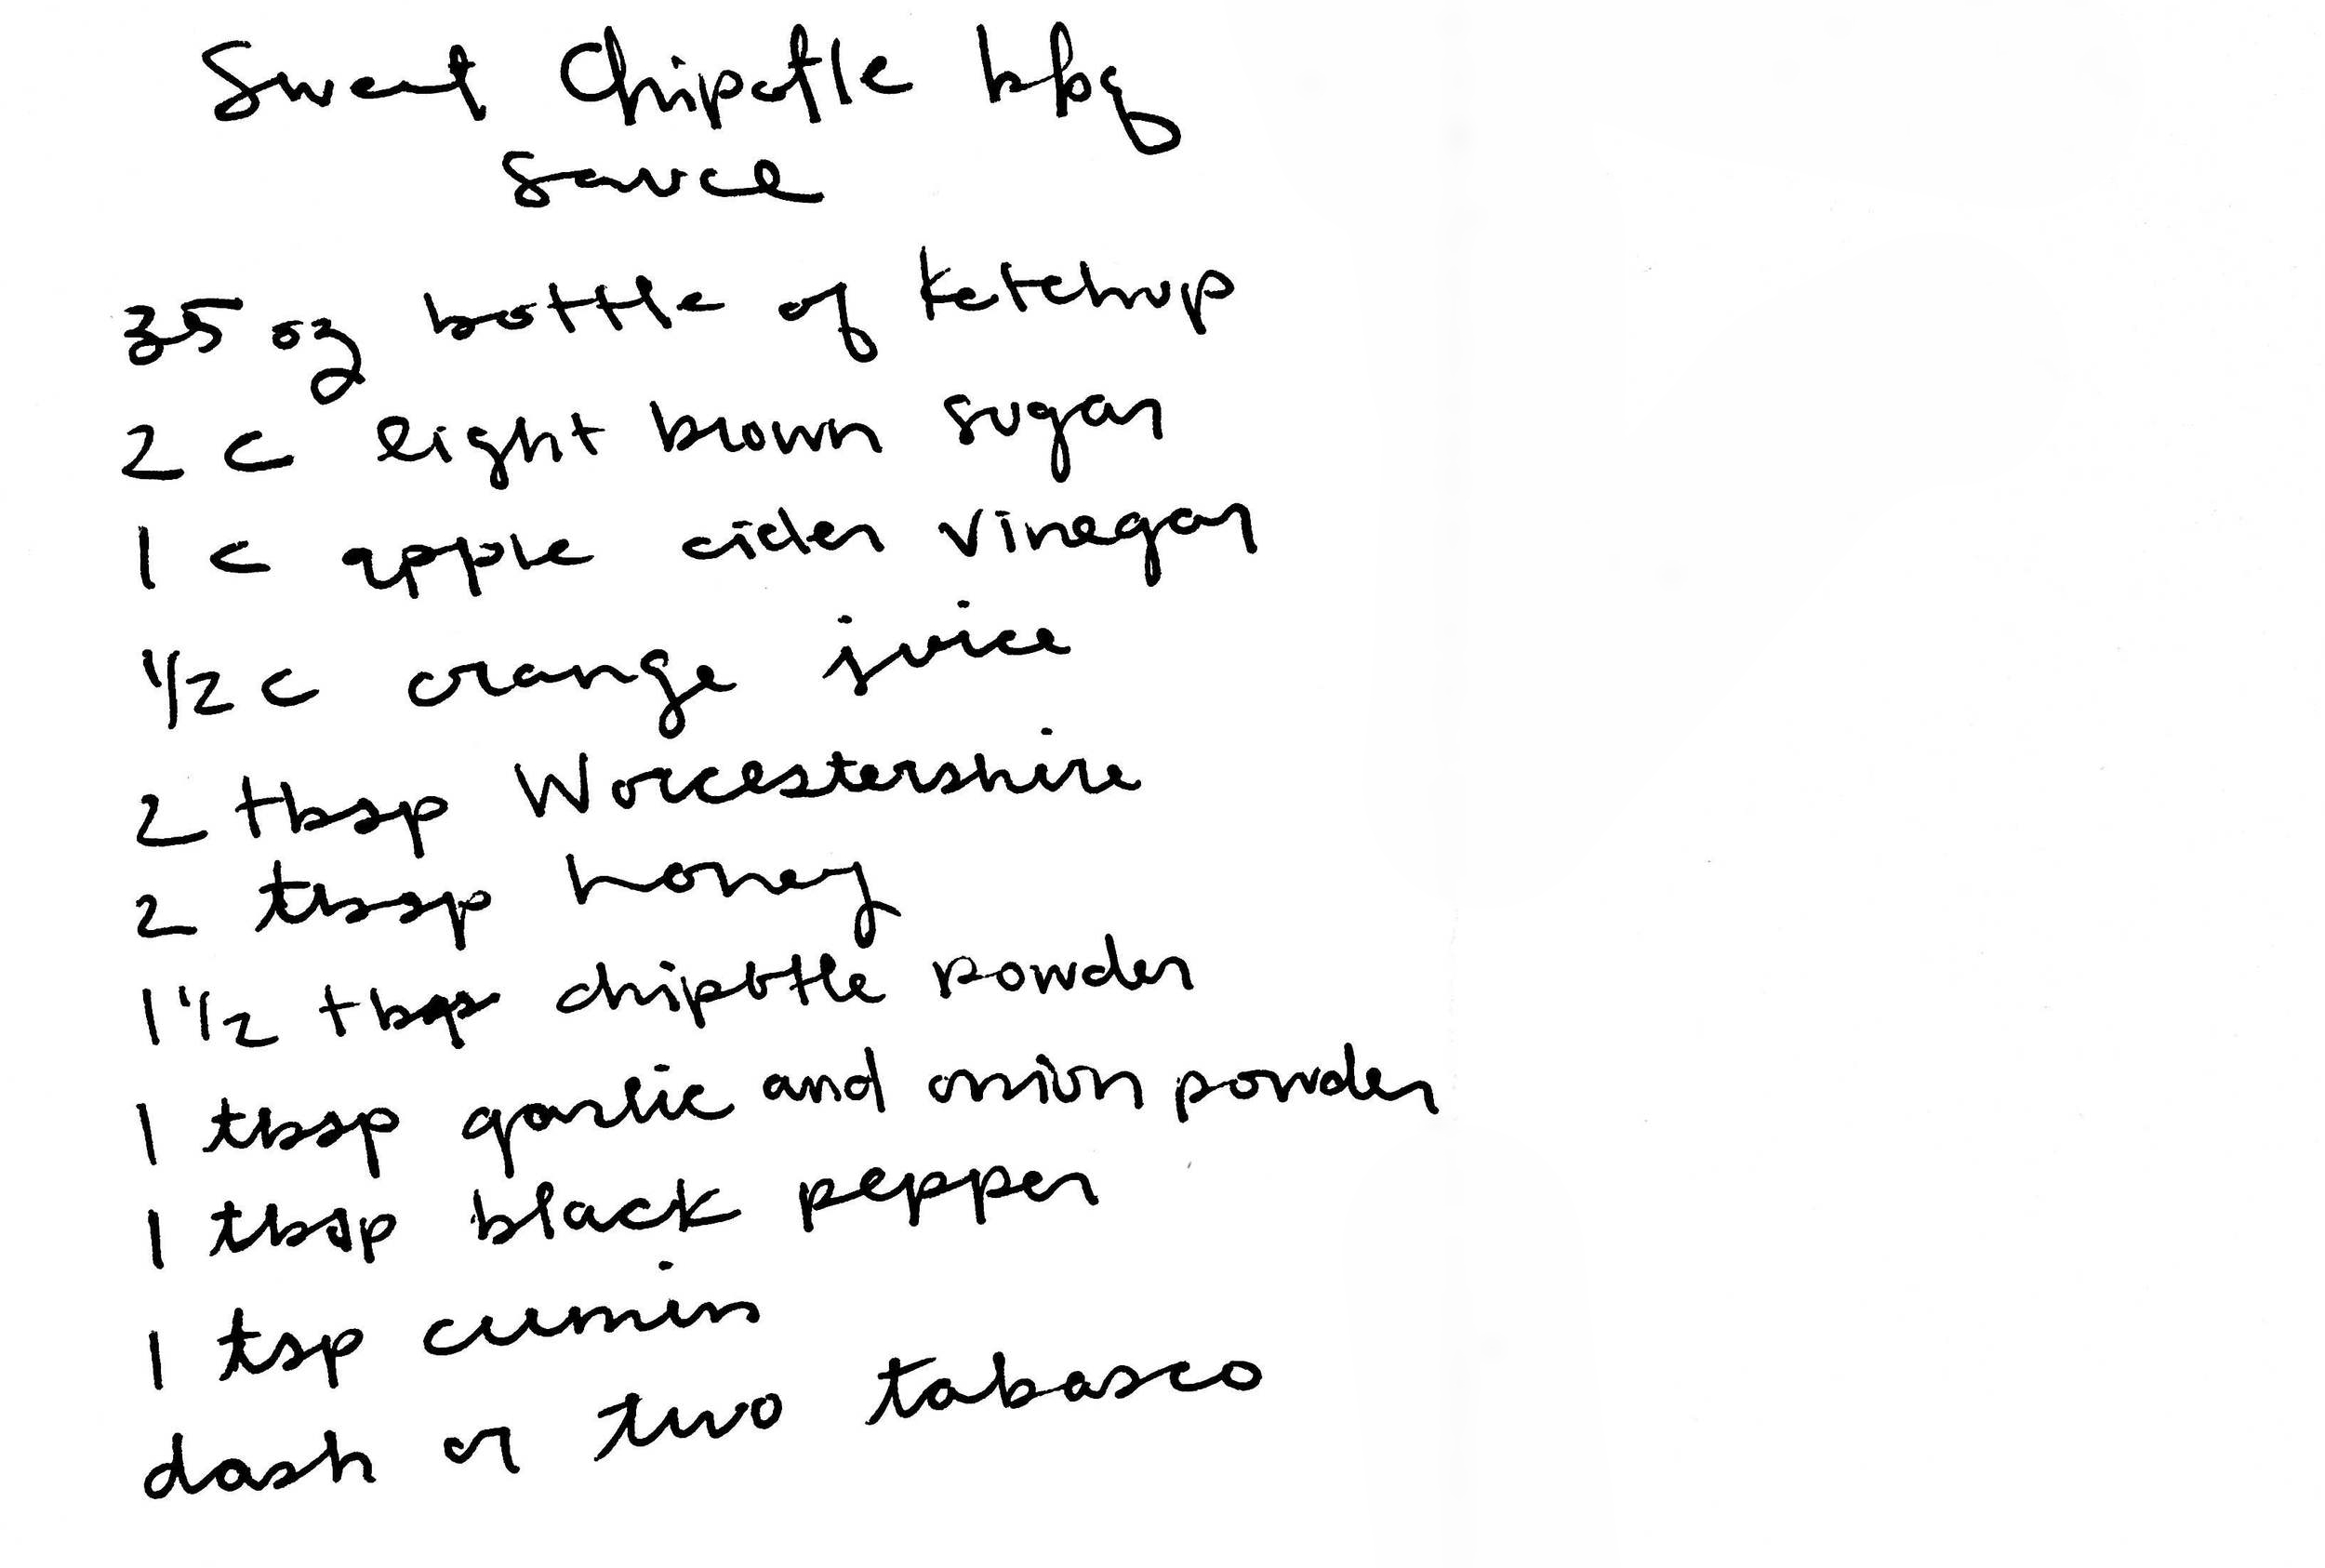 Sweet Chipotle bbq
sauce
35 oz bottle of ketchup
2 c light brown sugar
1 c apple cider vinegar
1/2 c orange juice
2 tbsp Worcestershire
2 tbsp honey
1 1/2 tbsp chipotle powder
1 tbsp garlic and onion powder
1 tbsp black pepper
1 tsp cumin
dash or two tabasco